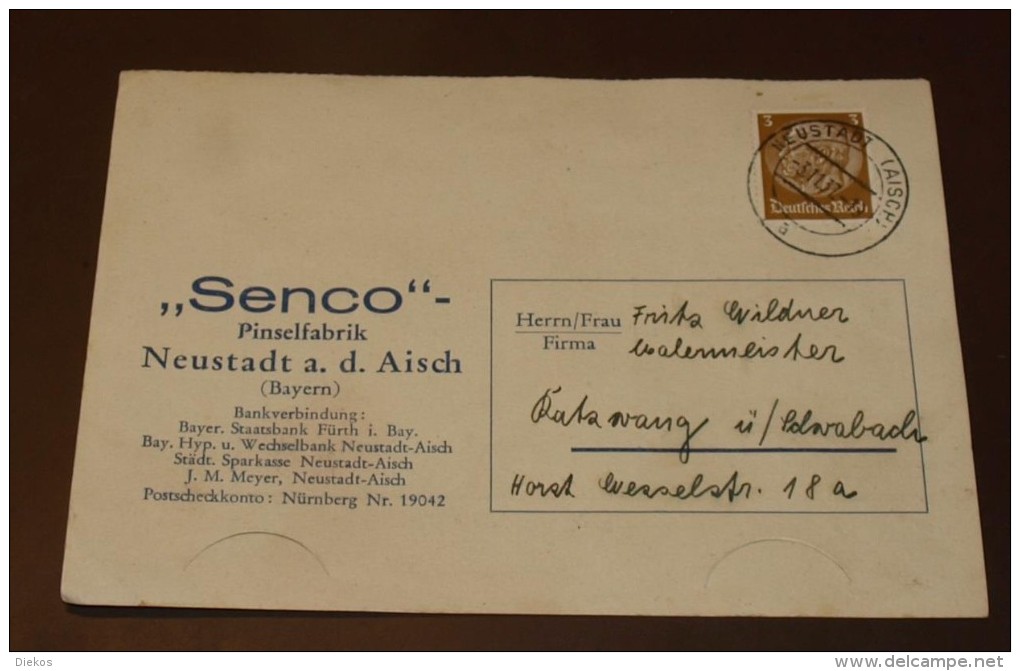 3 3
Deutsches Reich
NEUSTADT (AISCH)
a
„Senco“-
Pinselfabrik
Neustadt a. d. Aisch
(Bayern)
Bankverbindung:
Bayer. Staatsbank Fürth i. Bay.
Bay. Hyp. u. Wechselbank Neustadt-Aisch
Städt. Sparkasse Neustadt-Aisch
J. M. Meyer, Neustadt-Aisch
Postscheckkonto: Nürnberg Nr. 19042
Herrn/Frau Fritz Wildner
Firma Malermeister
Katzwang ü/Schwabach
Horst Wesselstr. 18a
Diekos
delcampe.net